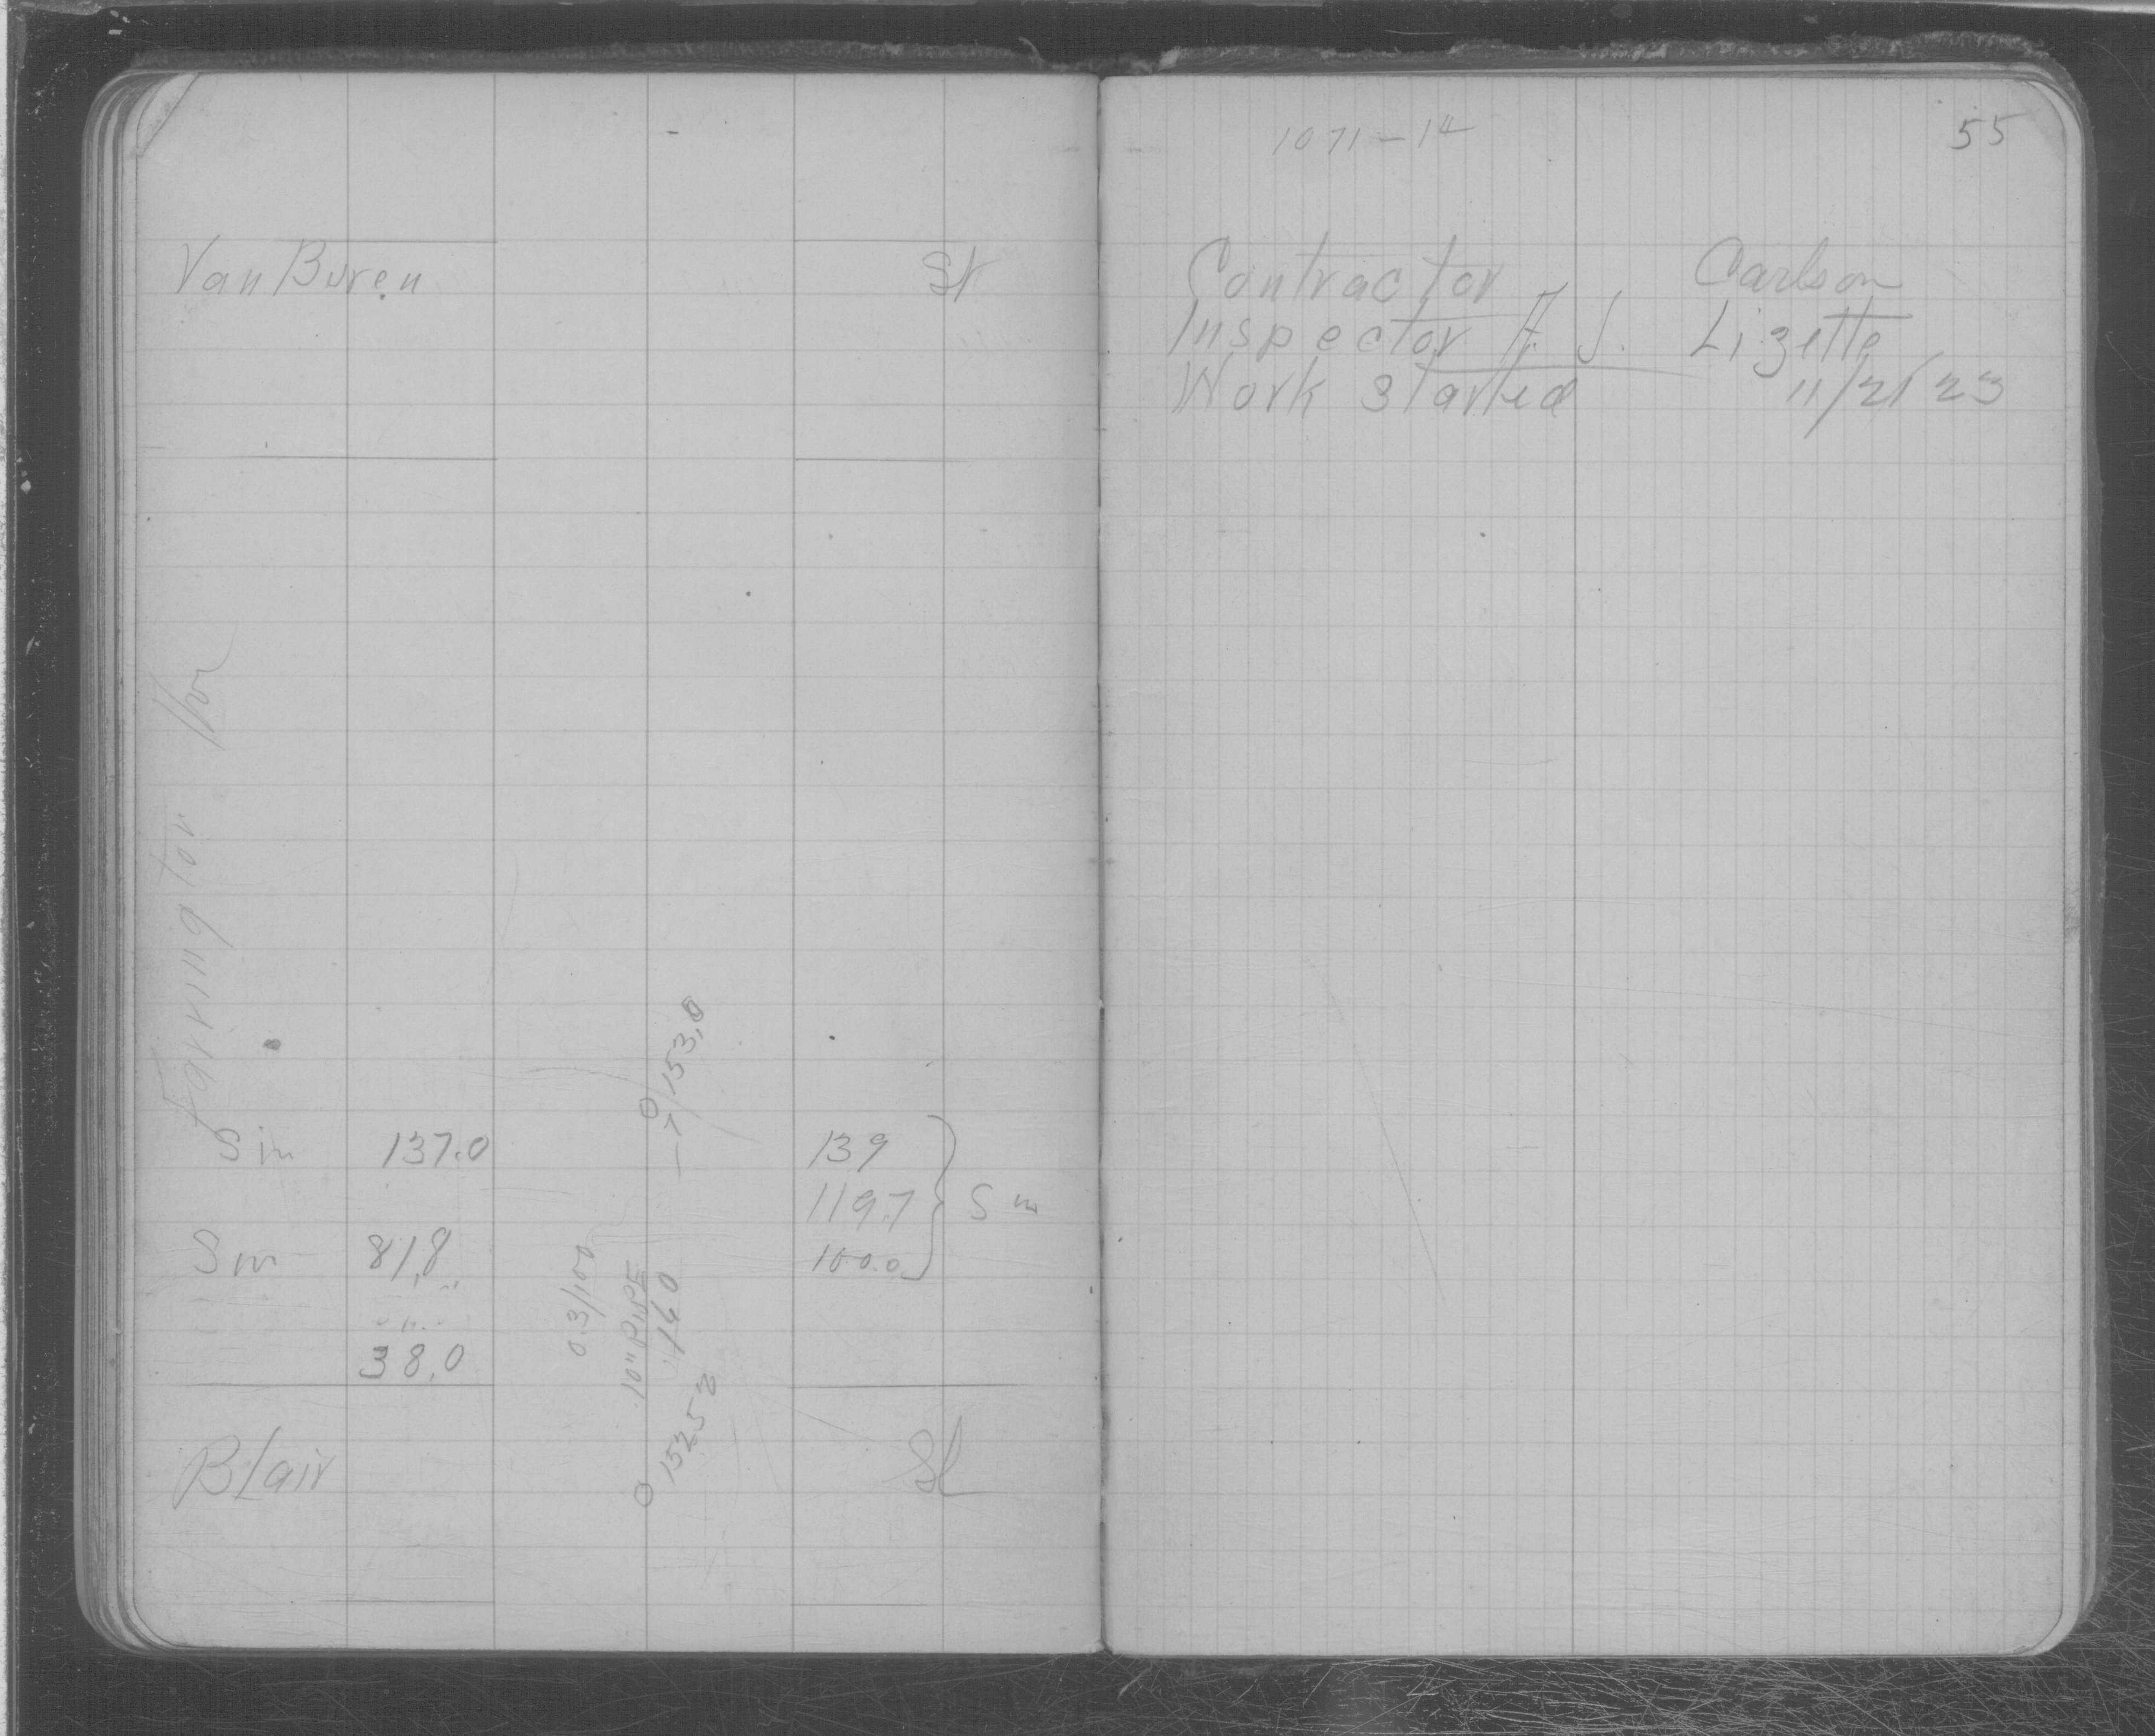 Van Buren St
Farrington Ave
153.0
Sm 137.0 139
119.7 Sm
Sm 81.8 100.0
0.3/100
10" PIPE
1160
38.0
152.52
Blair St
1071-14 55
Contractor Carlson
Inspector A. J. Lizette
Work Started 11/21/23